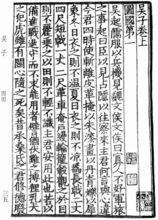 吳子卷上
圖國第一
吳起儒服以兵機見魏文侯文侯曰寡人不好軍旅
之事起曰臣以見占隱以往察來主君何言與心違
今君四時使斬離皮革掩以朱漆畫以丹青爍以犀
象冬日衣之則不溫夏日衣之則不涼為長戟二丈
四尺短戟一丈二尺革車掩戶縵輪籠轂觀之於目
則不麗乘之以田則不輕不識主君安用此也若以
備進戰退守而不求能用者譬猶伏雞之搏狸乳犬
之犯虎雖有鬬心隨之死矣昔承桑氏之君修德廢
吳子
三五